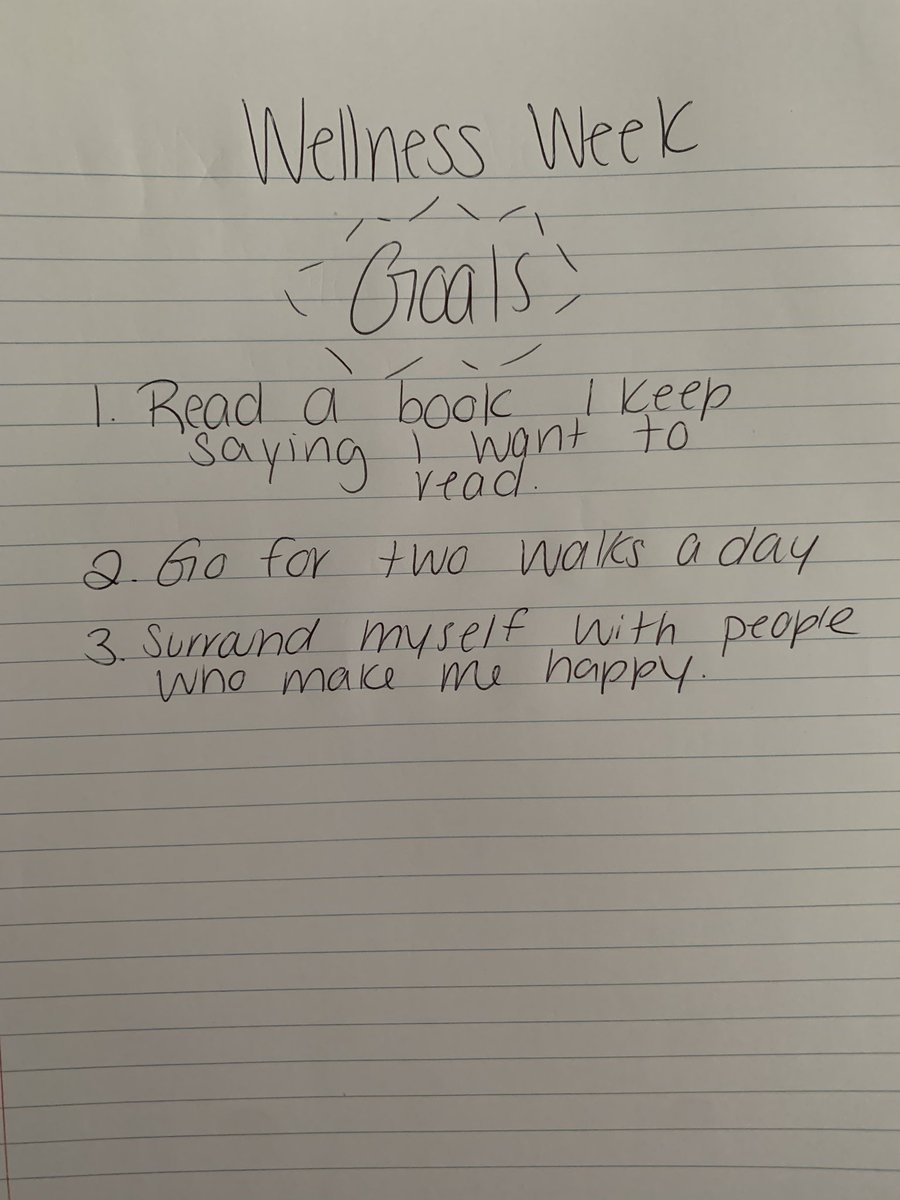 Wellness Week
Goals
1. Read a book I keep
saying I want to
read.
2. Go for two walks a day
3. Surrand myself with people
who make me happy.